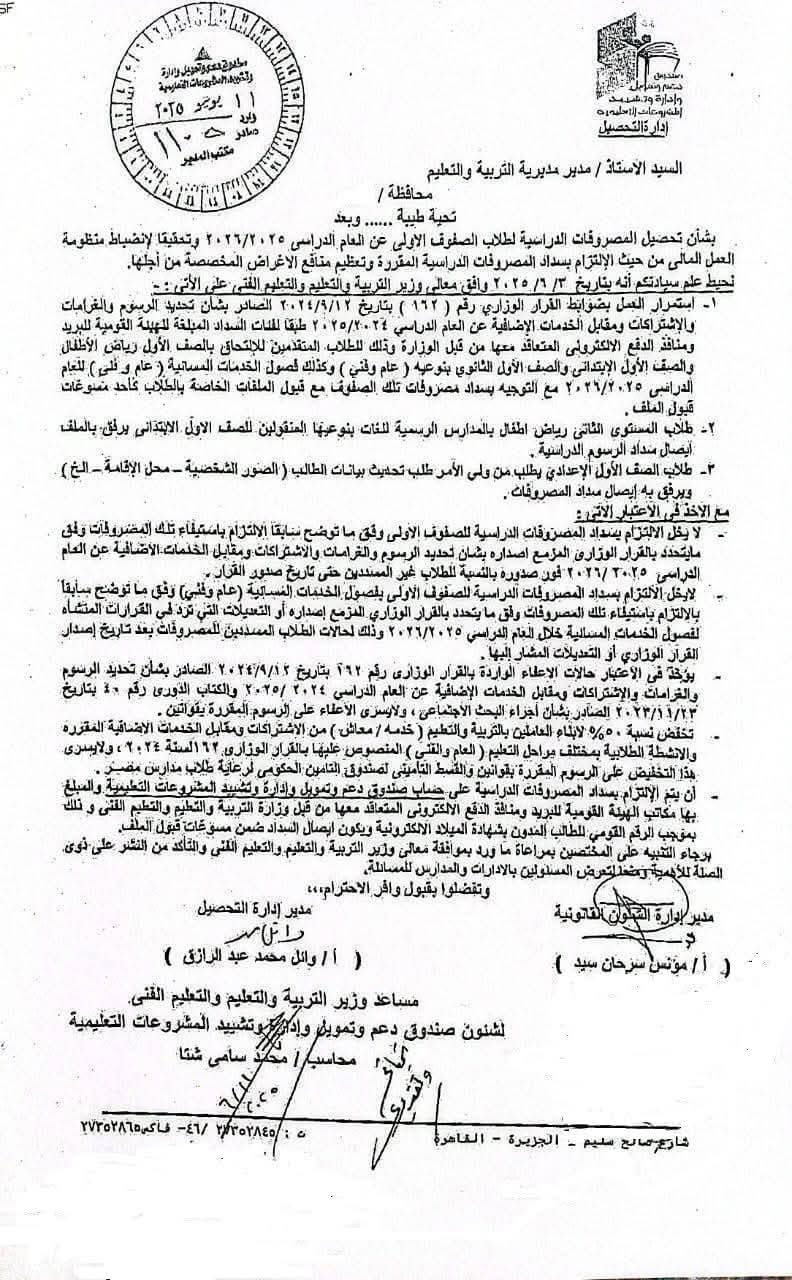 SF
صندوق دعم وتمويل وإدارة
وتشييد المشروعات التعليمية
١١ يونيو ٢٠٢٥
وارد
صادر
مكتب المدير
صندوق
دعم وتمويل
وإدارة وتشييد
المشروعات التعليمية
إدارة التحصيل
السيد الأستاذ / مدير مديرية التربية والتعليم
محافظة /
تحية طيبة ...... وبعد
بشأن تحصيل المصروفات الدراسية لطلاب الصفوف الاولى عن العام الدراسى ٢٠٢٦/٢٠٢٥ وتحقيقا لإنضباط منظومة
العمل المالى من حيث الإلتزام بسداد المصروفات الدراسية المقررة وتعظيم منافع الاغراض المخصصة من أجلها.
نحيط علم سيادتكم أنه بتاريخ ٣ /٦ /٢٠٢٥ وافق معالى وزير التربية والتعليم والتعليم الفنى على الأتى : -
١- استمرار العمل بضوابط القرار الوزاري رقم ( ١٦٢ ) بتاريخ ٢٠٢٤/٩/١٢ الصادر بشأن تحديد الرسوم والغرامات
والإشتراكات ومقابل الخدمات الإضافية عن العام الدراسي ٢٠٢٥/٢٠٢٤ طبقا لفئات السداد المبلغة للهيئة القومية للبريد
ومنافذ الدفع الالكترونى المتعاقد معها من قبل الوزارة وذلك للطلاب المتقدمين للإلتحاق بالصف الأول رياض الأطفال
والصف الأول الإبتدائى والصف الأول الثانوي بنوعيه ( عام وفني ) وكذلك فصول الخدمات المسائية ( عام و فنى ) للعام
الدراسى ٢٠٢٦/٢٠٢٥ مع التوجيه بسداد مصروفات تلك الصفوف مع قبول الملفات الخاصة بالطلاب كأحد مسوغات
قبول الملف .
٢- طلاب المستوى الثانى رياض اطفال بالمدارس الرسمية للغات بنوعيها المنقولين للصف الاول الابتدائى يرفق بالملف
ايصال سداد الرسوم الدراسية .
٣- طلاب الصف الأول الإعدادي يطلب من ولي الأمر طلب تحديث بيانات الطالب ( الصور الشخصية – محل الإقامة – الخ )
ويرفق به إيصال سداد المصروفات.
مع الأخذ فى الأعتبار الأتى :
- لا يخل الالتزام بسداد المصروفات الدراسية للصفوف الأولى وفق ما توضح سابقا الإلتزام باستيفاء تلك المصروفات وفق
مايتحدد بالقرار الوزارى المزمع اصداره بشأن تحديد الرسوم والغرامات والاشتراكات ومقابل الخدمات الأضافية عن العام
الدراسى ٢٠٢٥ /٢٠٢٦ فور صدوره بالنسبة للطلاب غير المسددين حتى تاريخ صدور القرار .
- لايخل الألتزام بسداد المصروفات الدراسية للصفوف الأولى بفصول الخدمات المسائية (عام وفني) وفق ما توضح سابقاً
بالالتزام باستيفاء تلك المصروفات وفق ما يتحدد بالقرار الوزاري المزمع إصداره أو التعديلات التي ترد في القرارات المنشأه
لفصول الخدمات المسائية خلال العام الدراسي ٢٠٢٦/٢٠٢٥ وذلك لحالات الطلاب المسددين للمصروفات بعد تاريخ إصدار
القرار الوزاري أو التعديلات المشار إليها .
- يؤخذ فى الأعتبار حالات الإعفاء الواردة بالقرار الوزارى رقم ١٦٢ بتاريخ ٢٠٢٤/٩/١٢ الصادر بشأن تحديد الرسوم
والغرامات والإشتراكات ومقابل الخدمات الإضافية عن العام الدراسي ٢٠٢٤ /٢٠٢٥ والكتاب الدورى رقم ٤٠ بتاريخ
٢٠٢٣/١١/٢٣ الصادر بشأن أجراء البحث الأجتماعى ، ولايسرى الأعفاء على الرسوم المقررة بقوانين .
- تخفض نسبة ٥٠% لأبناء العاملين بالتربية والتعليم ( خدمه / معاش ) من الإشتراكات ومقابل الخدمات الاضافية المقرره
والانشطة الطلابية بمختلف مراحل التعليم ( العام والفنى ) المنصوص عليها بالقرار الوزارى ١٦٢ لسنة ٢٠٢٤ ، ولايسرى
هذا التخفيض على الرسوم المقررة بقوانين والقسط التأمينى لصندوق التامين الحكومى لرعاية طلاب مدارس مصر .
- أن يتم الإلتزام بسداد المصروفات الدراسية على حساب صندوق دعم وتمويل وإدارة وتشييد المشروعات التعليمية والمبلغ
بها مكاتب الهيئة القومية للبريد ومنافذ الدفع الالكترونى المتعاقد معها من قبل وزارة التربية والتعليم والتعليم الفنى و ذلك
بموجب الرقم القومي للطالب المدون بشهادة الميلاد الالكترونية ويكون ايصال السداد ضمن مسوغات قبول الملف.
برجاء التنبيه على المختصين بمراعاة ما ورد بموافقة معالى وزير التربية والتعليم والتعليم الفنى والتأكد من النشر على ذوى
الصلة للأهمية ومنعا لتعرض المسئولين بالادارات والمدارس للمسائلة.
وتفضلوا بقبول وافر الاحترام،،،
مدير إدارة الشئون القانونية
مدير إدارة التحصيل
( أ / مؤنس سرحان سيد )
( أ / وائل محمد عبد الرازق )
مساعد وزير التربية والتعليم والتعليم الفنى
لشئون صندوق دعم وتمويل وإدارة وتشييد المشروعات التعليمية
محاسب / محمد سامى شتا
شارع صالح سليم – الجزيرة – القاهرة
ت : ٢٧٣٥٢٨٤٥ /٤٦- فاكس ٢٧٣٥٢٨٦٥